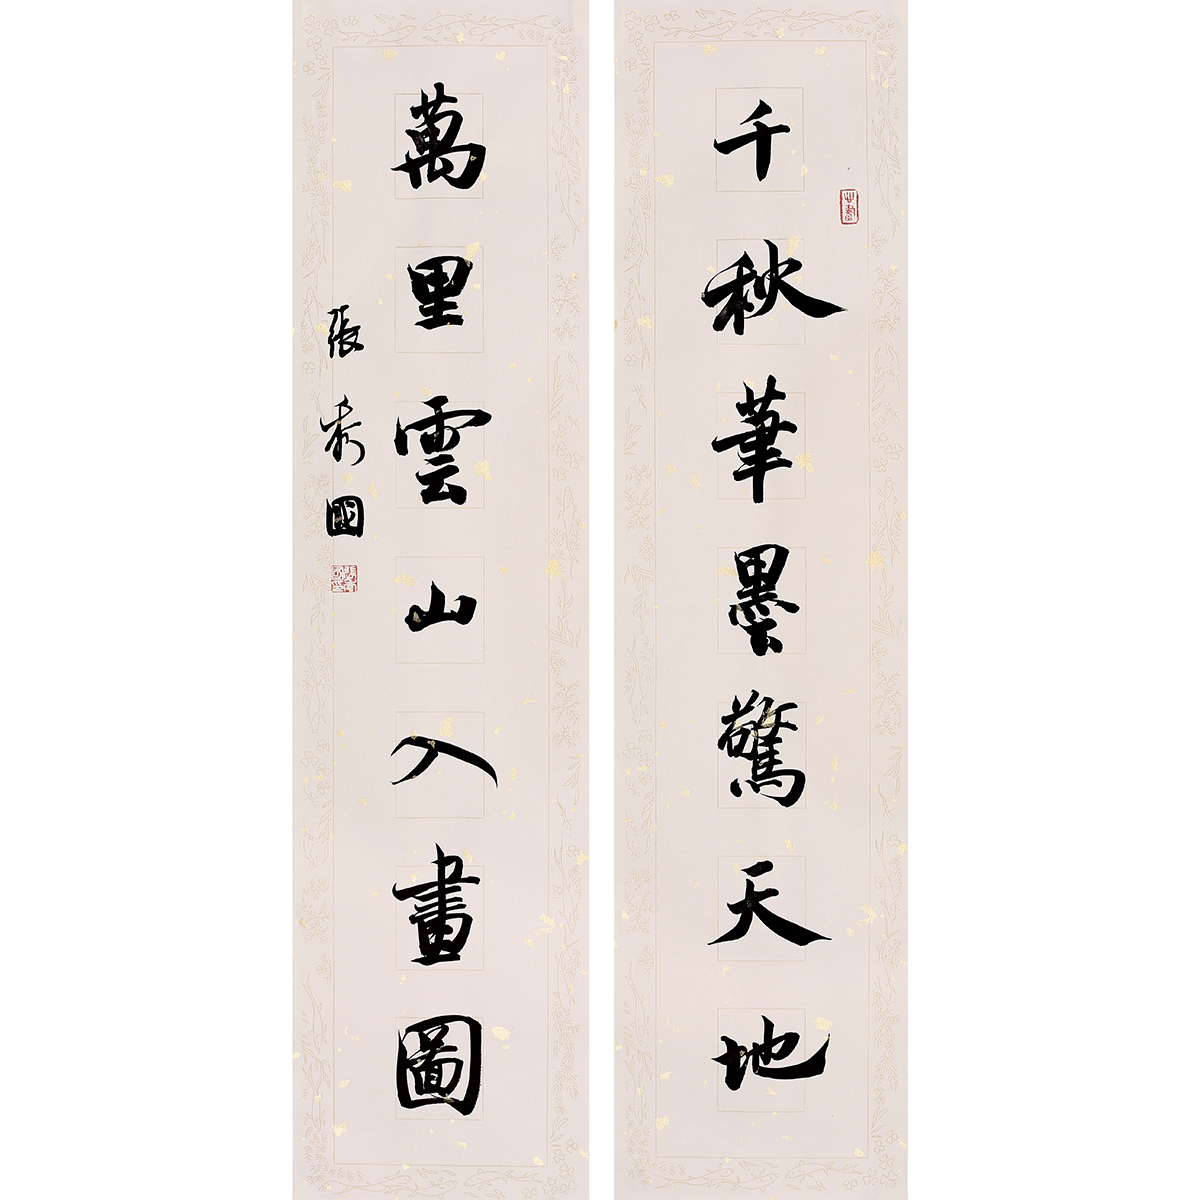 千秋筆墨驚天地
萬里雲山入畫圖
張秀國